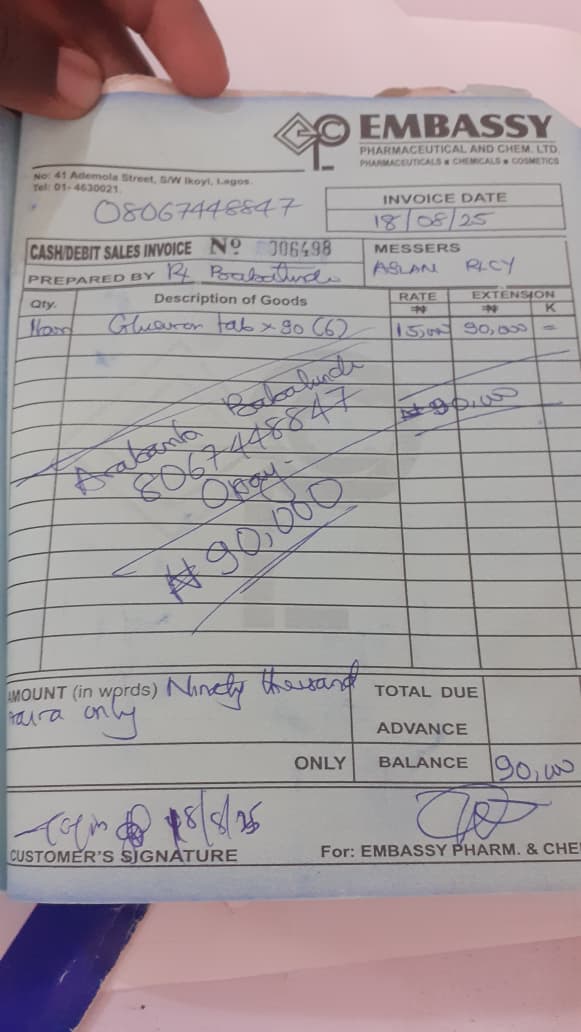 EMBASSY
PHARMACEUTICAL AND CHEM. LTD.
PHARMACEUTICALS ■ CHEMICALS ■ COSMETICS
No: 41 Ademola Street, S/W Ikoyi, Lagos.
Tel: 01- 4630021
08067448847
INVOICE DATE
18/08/25
CASH/DEBIT SALES INVOICE Nº 006498
MESSERS
PREPARED BY Babatunde
ASLAN
Qty. Description of Goods RATE EXTENSION
₦ ₦ K
tab x 90 (6) 15,000 90,000 =
₦90,000
Babatunde
8067448847
Opay-
₦90,000
AMOUNT (in words) Ninety thousand
naira only
TOTAL DUE
ADVANCE
ONLY BALANCE 90,000
18/8/25
CUSTOMER'S SIGNATURE
For: EMBASSY PHARM. & CHE